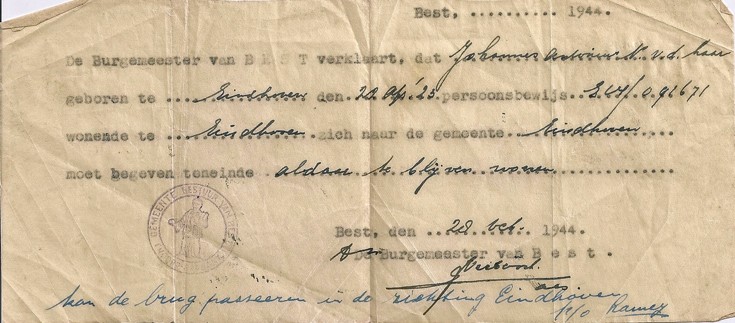 Best, .......... 1944.
De Burgemeester van B E S T verklaart, dat Johannes Antonius N. v.d. Haar
geboren te ... Eindhoven den 20 Apr '23. persoonsbewijs E64/092671
wonende te ... Eindhoven zich naar de gemeente Eindhoven
moet begeven teneinde aldaar te blijven wonen
GEMEENTE BESTUUR VAN BEST
Best, den 28 Oct. 1944.
De Burgemeester van B e s t .
kan de brug passeeren in de richting Eindhoven
p/o